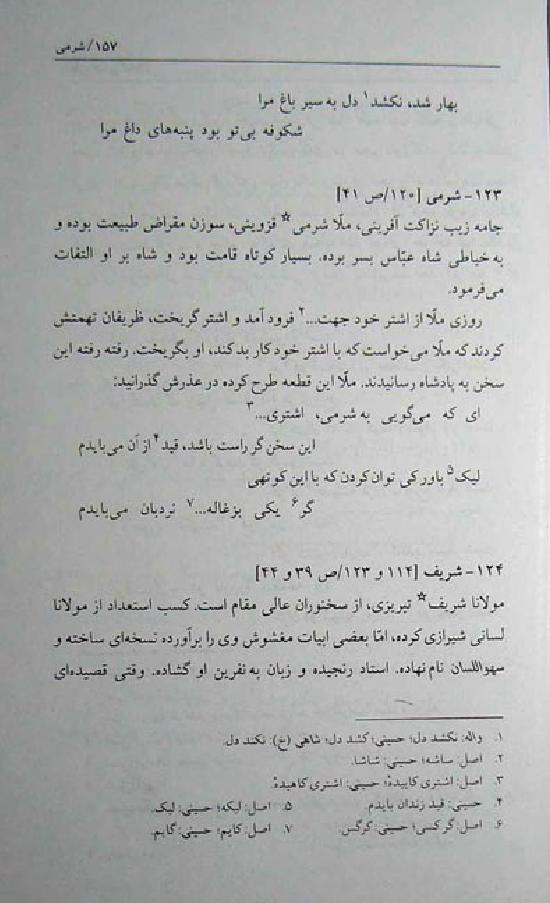 ۱۵۷/شرمی
بهار شد، نکشد۱ دل به سیر باغ مرا
شکوفه بی‌تو بود پنبه‌های داغ مرا
۱۲۳- شرمی [۱۲۰/ص ۴۱]
جامه زیب نزاکت آفرینی، ملّا شرمی☆ قزوینی، سوزن مقراض طبیعت بوده و
به خیاطی شاه عبّاس بسر بوده. بسیار کوتاه قامت بود و شاه بر او التفات
می‌فرمود.
روزی ملّا از اشتر خود جهت...۲ فرود آمد و اشتر گریخت، ظریفان تهمتش
کردند که ملّا می‌خواست که با اشتر خود کار بد کند، او بگریخت. رفته رفته این
سخن به پادشاه رسانیدند. ملّا این قطعه طرح کرده در عذرش گذرانید:
ای که می‌گویی به شرمی، اشتری...۳
این سخن گر راست باشد، قید۴ از آن می‌بایدم
لیک۵ باور کی توان کردن که با این کوتهی
گر۶ یکی بزغاله...۷ نردبان می‌بایدم
۱۲۴- شریف [۱۱۴ و ۱۲۳/ص ۳۹ و ۴۴]
مولانا شریف☆ تبریزی، از سخنوران عالی مقام است. کسب استعداد از مولانا
لسانی شیرازی کرده، امّا بعضی ابیات مغشوش وی را برآورده نسخه‌ای ساخته و
سهواللسان نام نهاده. استاد رنجیده و زبان به نفرین او گشاده. وقتی قصیده‌ای
۱. واله: نکشد دل؛ حسینی: کشد دل؛ شاهی (خ): نکند دل.
۲. اصل: ساشه؛ حسینی: شاشا.
۳. اصل: اشتری کاییدهٔ؛ حسینی: اشتری کاهیدهٔ.
۴. حسینی: قید زندان بایدم ۵. اصل: لیکه؛ حسینی: لیک.
۶. اصل: گر کسی؛ حسینی: کرگس. ۷. اصل: کایم؛ حسینی: گایم.